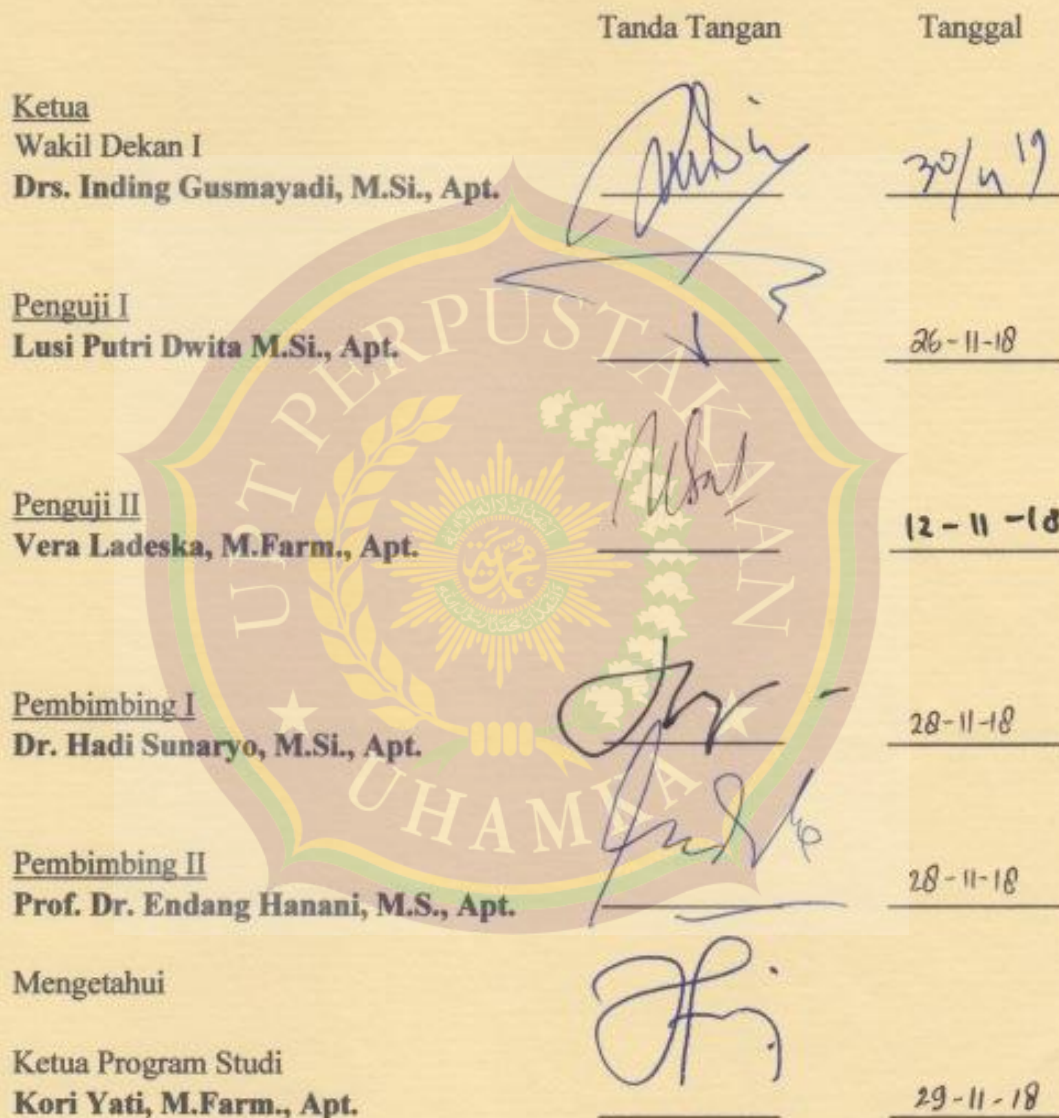 Tanda Tangan Tanggal
Ketua
Wakil Dekan I
Drs. Inding Gusmayadi, M.Si., Apt. 30/4 19
Penguji I
Lusi Putri Dwita M.Si., Apt. 26-11-18
Penguji II
Vera Ladeska, M.Farm., Apt. 12-11-18
Pembimbing I
Dr. Hadi Sunaryo, M.Si., Apt. 28-11-18
Pembimbing II
Prof. Dr. Endang Hanani, M.S., Apt. 28-11-18
Mengetahui
Ketua Program Studi
Kori Yati, M.Farm., Apt. 29-11-18
UPT PERPUSTAKAAN
UHAMKA